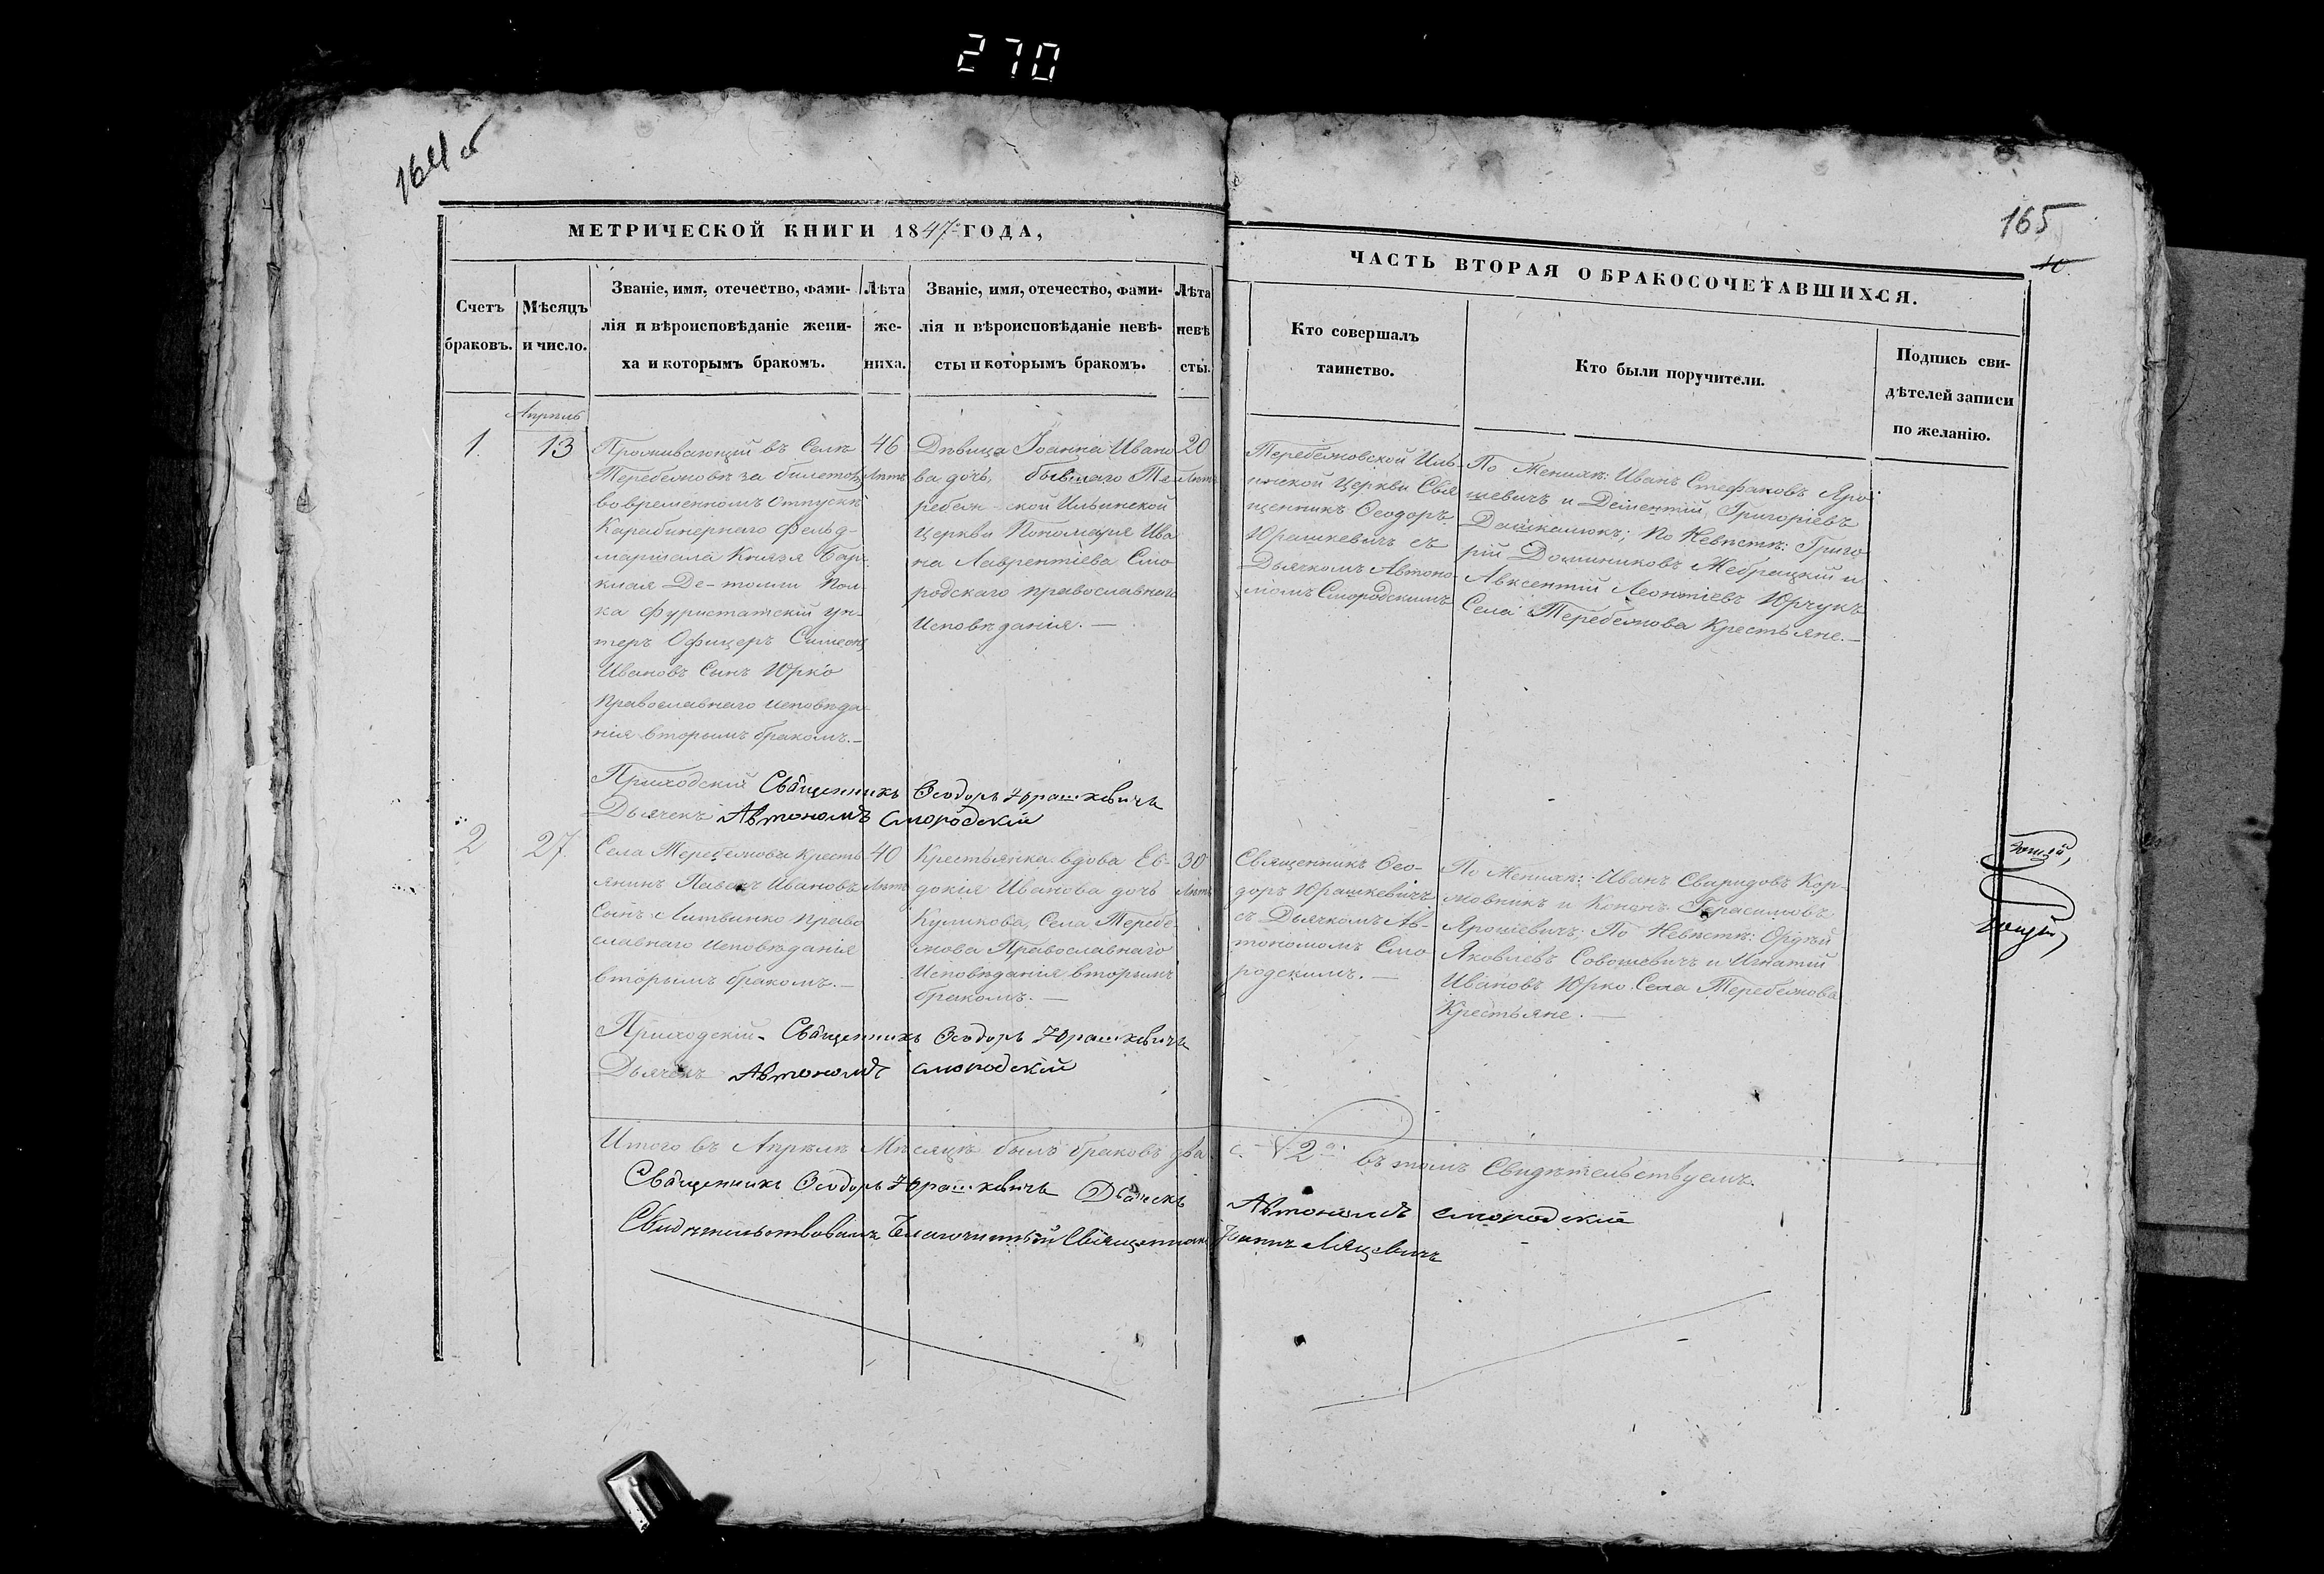 270
164 об
165
10.
МЕТРИЧЕСКОЙ КНИГИ 1847 ГОДА,
ЧАСТЬ ВТОРАЯ О БРАКОСОЧЕТАВШИХСЯ.
Счетъ
браковъ.
Мѣсяцъ
и число.
Званіе, имя, отечество, фами-
лія и вѣроисповѣданіе жени-
ха и которымъ бракомъ.
Лѣта
же-
ниха.
Званіе, имя, отечество, фами-
лія и вѣроисповѣданіе невѣ-
сты и которымъ бракомъ.
Лѣта
невѣ
сты.
Кто совершалъ
таинство.
Кто были поручители.
Подпись сви-
дѣтелей записи
по желанію.
Апрѣль
1.
13
Проживающій въ Селѣ
Теребежовѣ за билетомъ
во временномъ отпускѣ
Карабинернаго Фельд-
маршала Князя Бар-
клая Де-толли Пол
ка фурштатскій ун-
теръ Офицеръ Симеонъ
Ивановъ Сынъ Юрко
Православнаго исповѣда
нія вторымъ бракомъ.-
46
Лѣтъ
Дѣвица Іоанна Ивано
ва дочь, бывшаго Те
ребеж-ской Ильинской
Церкви Пономаря Ива
на Лаврентіева Смо
родскаго православнаго
Исповѣданія.-
20
Лѣтъ
Теребежовской Иль-
инской Церкви Свя
щенникъ Ѳеодоръ
Юрашкевичъ съ
Дьячкомъ Автоно-
момъ Смородскимъ
По Женихѣ: Иванъ Стефановъ Яро
шевичъ и Дементій Григоріевъ
Дашкалюкъ; По Невѣстѣ: Григо
рій Доминиковъ Жебрацкій и
Авксентій Леонтіевъ Юрчукъ
Села Теребежова Крестьяне.-
Приходскій Священникъ Ѳеодоръ Юрашкевичъ
Дьячекъ Автономъ Смородскій
2
27.
Села Теребежова Кресть
янинъ Павелъ Ивановъ
Сынъ Литвинко Право
славнаго исповѣданія
вторымъ бракомъ.-
40
Лѣтъ
Крестьянка вдова Ев-
докія Иванова дочь
Куликова, Села Теребе-
жова Православнаго
Исповѣданія вторымъ
бракомъ.-
30
Лѣтъ
Священникъ Ѳео-
доръ Юрашкевичъ
съ Дьячкомъ Ав-
тономомъ Смо
родскимъ.-
По Женихѣ: Иванъ Свиридовъ Кор-
жовникъ и Кононъ Герасимовъ
Ярошевичъ; По Невѣстѣ:
Яковлевъ и Игнатій
Ивановъ Юрко Села Теребежова
Крестьяне.-
Приходскій- Священникъ Ѳеодоръ Юрашкевичъ
Дьячекъ Автономъ Смородскій
Итого въ Апрѣлѣ Мѣсяцѣ было браковъ два 2а. въ томъ Свидѣтельствуемъ.
Священникъ Ѳеодоръ Юрашкевичъ Дьячекъ Автономъ Смородскій
Свидѣтельствовалъ Благочинный Священникъ Іоаннъ Ляцевичъ